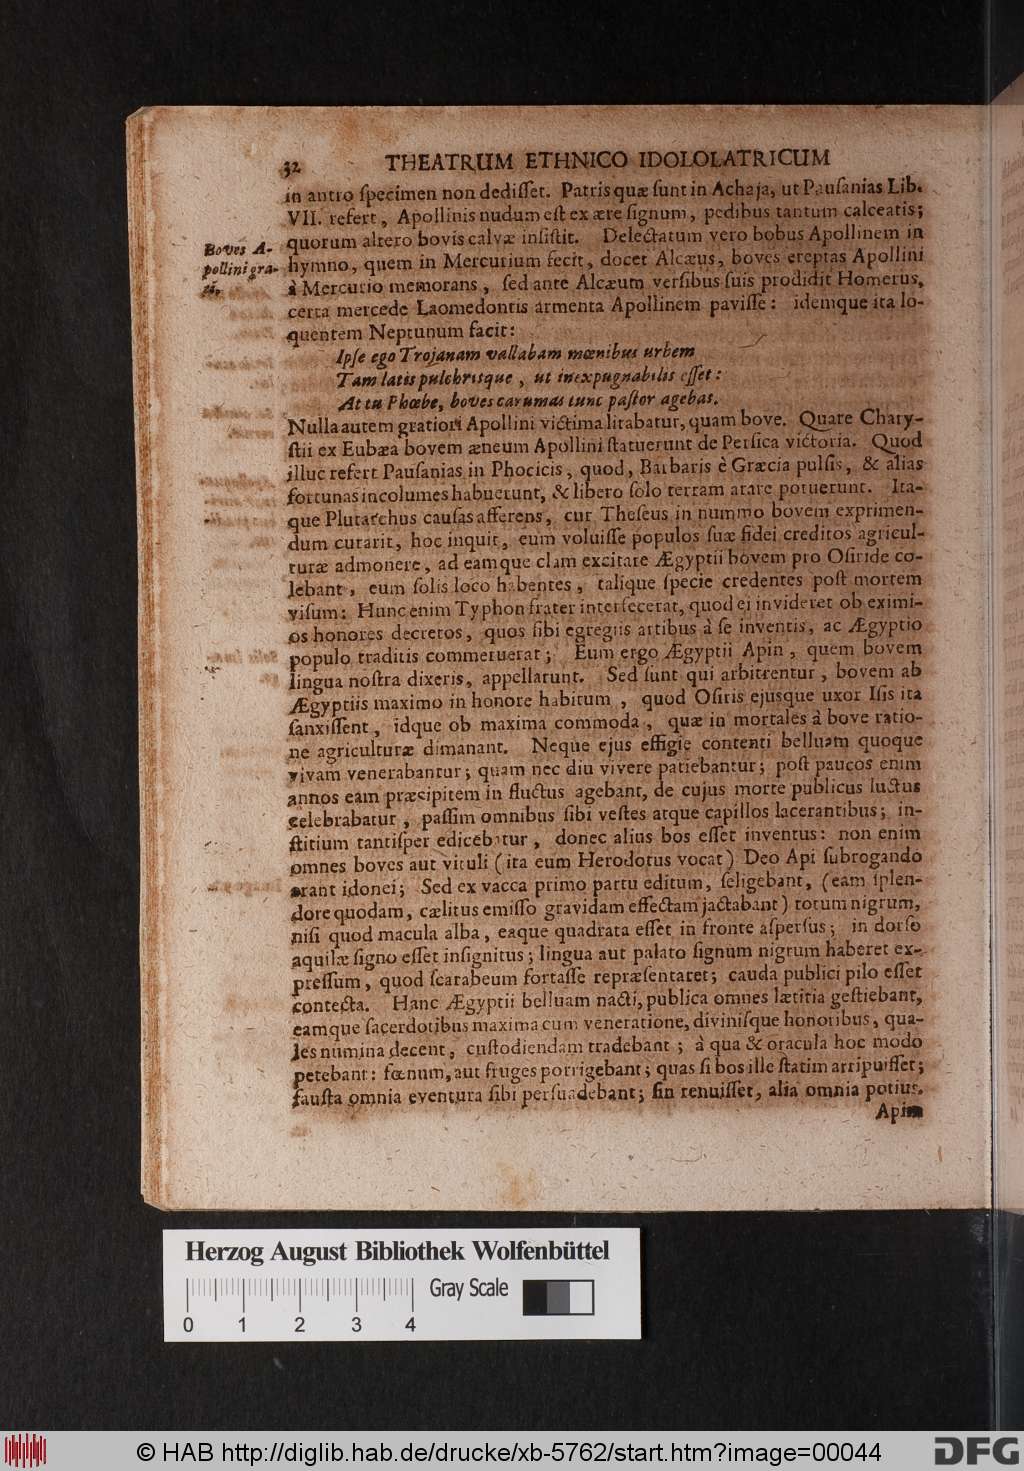 32 THEATRUM ETHNICO IDOLOLATRICUM
in antro ſpecimen non dediſſet. Patris quæ ſunt in Achaja, ut Pauſanias Lib.
VII. refert, Apollinis nudum eſt ex ære ſignum, pedibus tantum calceatis;
quorum altero bovis calvæ inſiſtit. Delectatum vero bobus Apollinem in
Boves A-
pollini gra-
ti.
hymno, quem in Mercurium fecit, docet Alcæus, boves ereptas Apollini
à Mercurio memorans, ſed ante Alcæum verſibus ſuis prodidit Homerus,
certa mercede Laomedontis armenta Apollinem paviſſe: idemque ita lo-
quentem Neptunum facit:
Ipſe ego Trojanam vallabam mœnibus urbem
Tam latis pulchrisque, ut inexpugnabilis eſſet:
At tu Phœbe, boves carumas tunc paſtor agebas.
Nulla autem gratiori Apollini victima litabatur, quam bove. Quare Chary-
ſtii ex Eubæa bovem æneum Apollini ſtatuerunt de Perſica victoria. Quod
illuc refert Pauſanias in Phocicis, quod, Barbaris è Græcia pulſis, & alias
fortunas incolumes habuerunt, & libero ſolo terram arare potuerunt. Ita-
que Plutarchus cauſas afferens, cur Theſeus in nummo bovem exprimen-
dum curarit, hoc inquit, eum voluiſſe populos ſuæ fidei creditos agricul-
turæ admonere, ad eamque clam excitare Ægyptii bovem pro Oſiride co-
lebant, eum ſolis loco habentes, talique ſpecie credentes poſt mortem
viſum: Hunc enim Typhon frater interfecerat, quod ei invideret ob eximi-
os honores decretos, quos ſibi egregiis artibus à ſe inventis, ac Ægyptio
populo traditis commeruerat; Eum ergo Ægyptii Apin, quem bovem
lingua noſtra dixeris, appellarunt. Sed ſunt qui arbitrentur, bovem ab
Ægyptiis maximo in honore habitum, quod Oſiris ejusque uxor Iſis ita
ſanxiſſent, idque ob maxima commoda, quæ in mortales à bove ratio-
ne agriculturæ dimanant. Neque ejus effigie contenti belluam quoque
vivam venerabantur; quam nec diu vivere patiebantur; poſt paucos enim
annos eam præcipitem in fluctus agebant, de cujus morte publicus luctus
celebrabatur, paſſim omnibus ſibi veſtes atque capillos lacerantibus; in-
ſtitium tantiſper edicebatur, donec alius bos eſſet inventus: non enim
omnes boves aut vituli (ita eum Herodotus vocat) Deo Api ſubrogando
erant idonei; Sed ex vacca primo partu editum, ſeligebant, (eam ſplen-
dore quodam, cælitus emiſſo gravidam effectam jactabant) totum nigrum,
niſi quod macula alba, eaque quadrata eſſet in fronte aſperſus; in dorſo
aquilæ ſigno eſſet inſignitus; lingua aut palato ſignum nigrum haberet ex-
preſſum, quod ſcarabeum fortaſſe repræſentaret; cauda publici pilo eſſet
contecta. Hanc Ægyptii belluam nacti, publica omnes lætitia geſtiebant,
eamque ſacerdotibus maxima cum veneratione, diviniſque honoribus, qua-
les numina decent, cuſtodiendam tradebant; à qua & oracula hoc modo
petebant: fœnum, aut fruges porrigebant; quas ſi bos ille ſtatim arripuiſſet;
fauſta omnia eventura ſibi perſuadebant; ſin renuiſſet, alia omnia potius.
Apim
Herzog August Bibliothek Wolfenbüttel
Gray Scale
0 1 2 3 4
© HAB http://diglib.hab.de/drucke/xb-5762/start.htm?image=00044
DFG